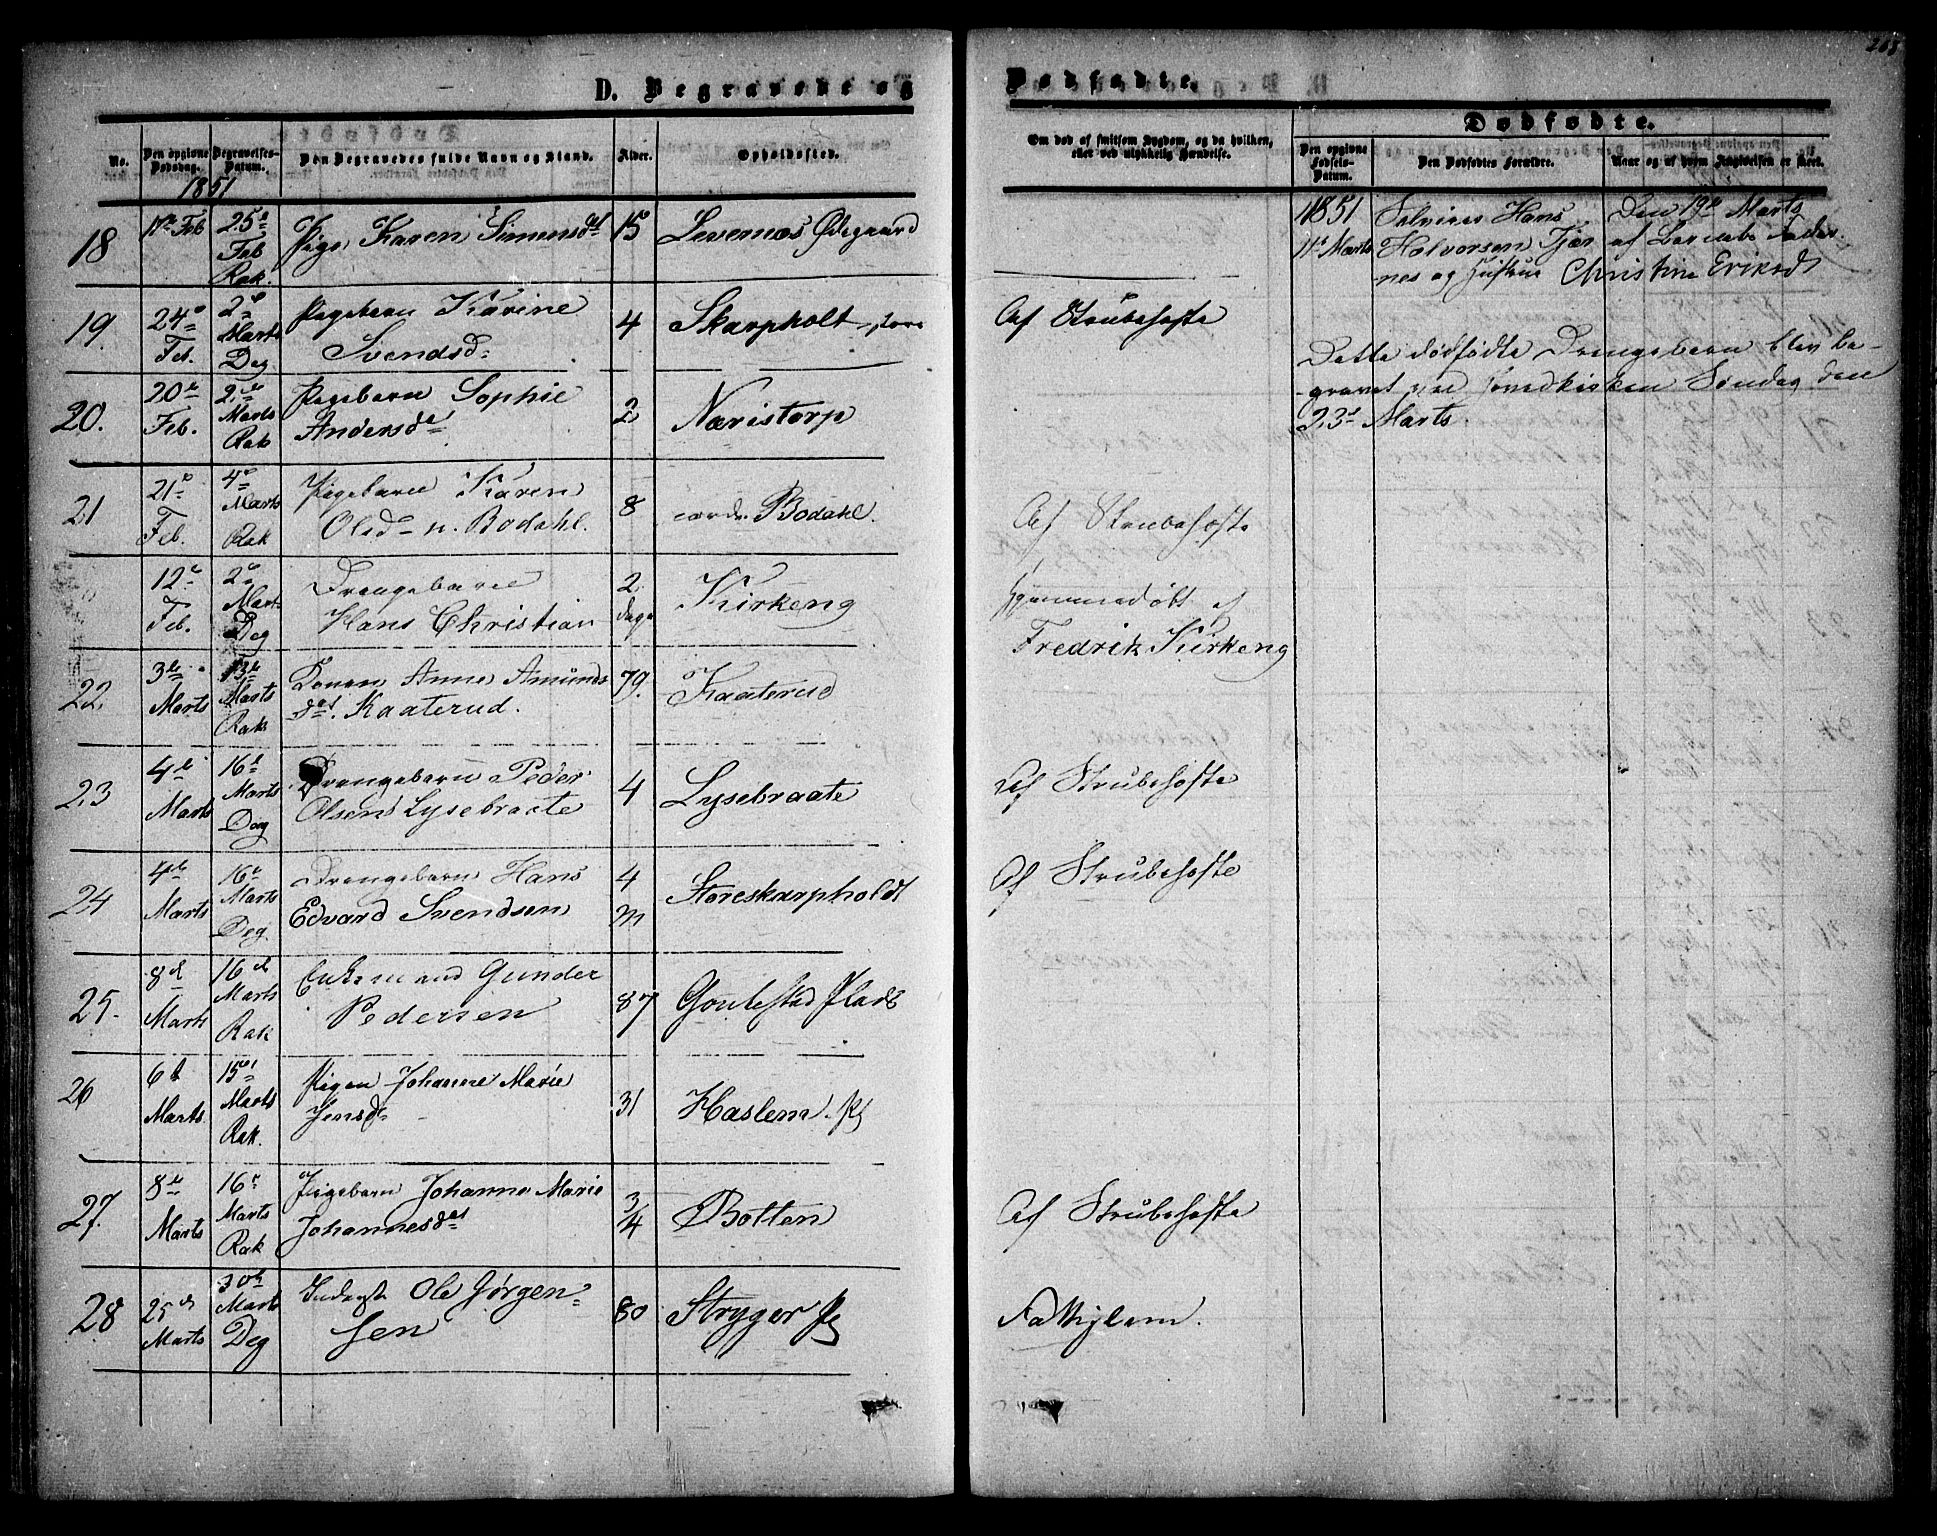 263
D. Begravede og
Dødfødte.
No.
Den opgivne Dødsdag.
Begravelses-Datum.
Den Begravedes fulde Navn og Stand.
Alder.
Opholdssted.
Om død af smitsom Sygdom, og da hvilken,
eller ved ulykkelig Hændelse.
Dødfødte.
Den opgivne Fødsels-Datum.
Den Dødfødtes Forældre.
Naar og af hvem Angivelsen er skeet.
1851
18 17de Feb 25de Feb Rak. Pige Karen Simensdt 15 Levernæs Ødegaard
1851 Hans Den 19de Marts
11te Marts Halvorsen Tjær af Barnets Fader
nes og Hustrue Christine Eriksdt
19. 24de Feb. 2de Marts Deg Pigebarn Karine
Svendsd. 4 Skarpholt store
Af Strubehoste
Dette dødfødte Drengebarn blev be-
gravet ved Hovedkirken Søndag den
23de Marts.
20. 20de Feb. 2de Marts Rak Pigebarn Sophie
Andersdt 2 Næristorp
21 21de Feb. 4de Marts Rak Pigebarn Karen
Olsd. n. Bodahl. 8 nordre Bodahl.
Af Strubehoste
12te Feb. 2de Marts Deg Drengebarn
Hans Christian 2 dage Kirkeng
Hjemmedøbt af
Fredrik Kirkeng
22. 3de Marts 13de Marts Rak Konen Anne Amunds
dat. Kaaterud. 79. Kaaterud
23 4de Marts 16de Marts Deg Drengebarn Peder
Olsen Lysebraate 4 Lysebraate
Af Strubehoste
24 4de Marts 16de Marts Deg. Drengebarn Hans
Edvard Svendsen 4 M Storeskarpholdt
Af Strubehoste
25. 8de Marts 16de Marts Rak Enkemand Gunder
Pedersen 87 Goulestad Plads
26 6te Marts 15de Marts Rak. Pigen Johanne Marie
Jensd. 31 Haslem Pl
27. 8de Marts 16de Marts Rak Pigebarn Johanne Marie
Johannesdat 3/4 Botten
Af Strubehoste
28 25de Marts 30te Marts Deg Inderst Ole Jørgen-
sen 80 Stryger Pl
Fattiglem.